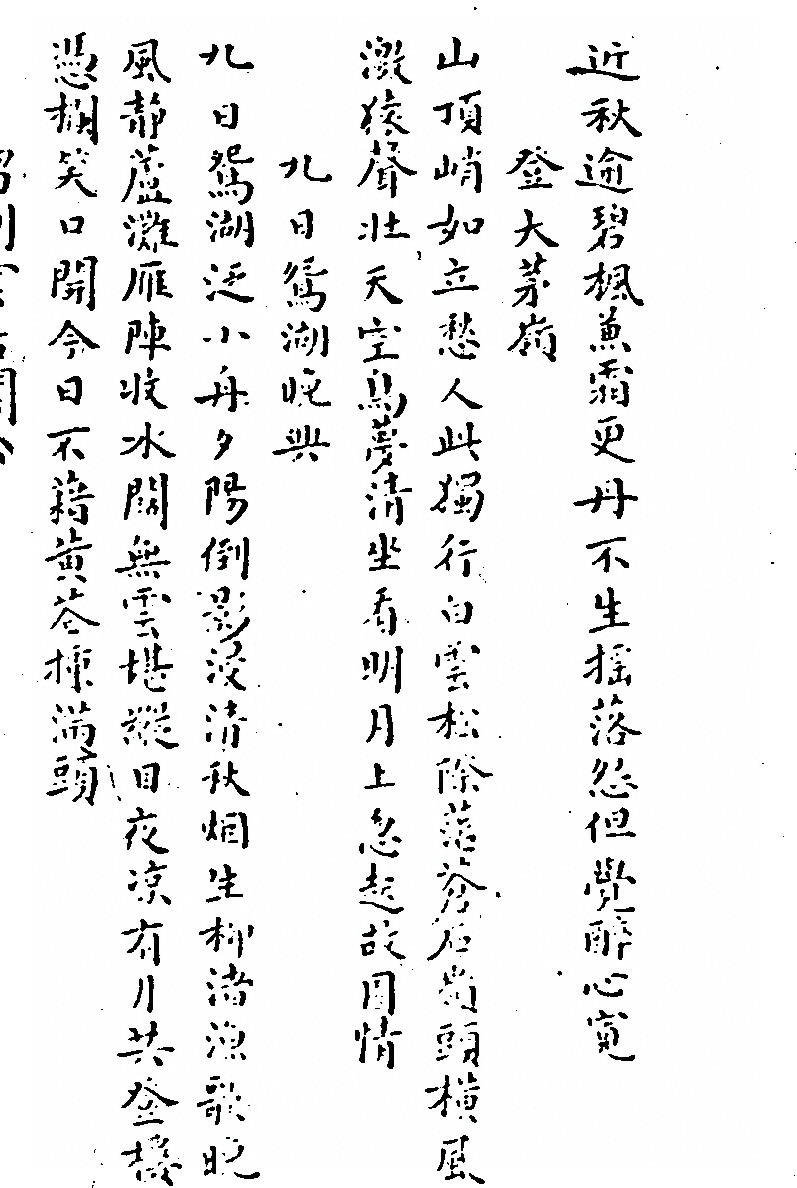 近秋逾碧楓兼霜更丹不生搖落怨但覺醉心寬
登大茅嶺
山頂峭如立愁人此獨行白雲松際落蒼石嶺頭橫風
激猿聲壯天空鳥夢清坐看明月上忽起故園情
九日鴛湖晚興
九日鴛湖泛小舟夕陽倒影浸清秋烟生柳渚漁歌晚
風静蘆灘雁陣收水闊無雲堪縱目夜凉有月共登樓
憑欄笑口開今日不藉黄花插滿頭